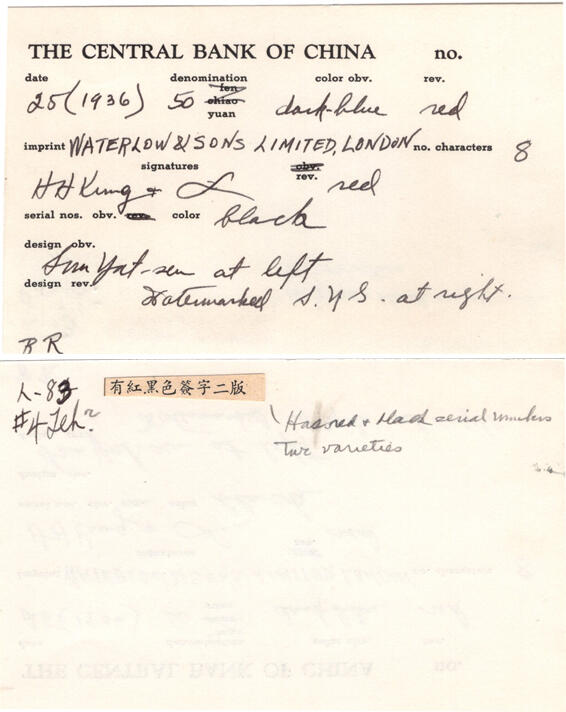 THE CENTRAL BANK OF CHINA no.
date denomination color obv. rev.
fen
25 (1936) 50 chiao dark-blue red
yuan
imprint WATERLOW & SONS LIMITED, LONDON no. characters 8
signatures obv.
rev.
HH Kung + red
serial nos. obv. rev. color black
design obv.
Sun Yat-sen at left
design rev.
Watermarked S.Y.S. at right.
RR
L-83 有紅黑色簽字二版
#4
Has red + black serial numbers
Two varieties